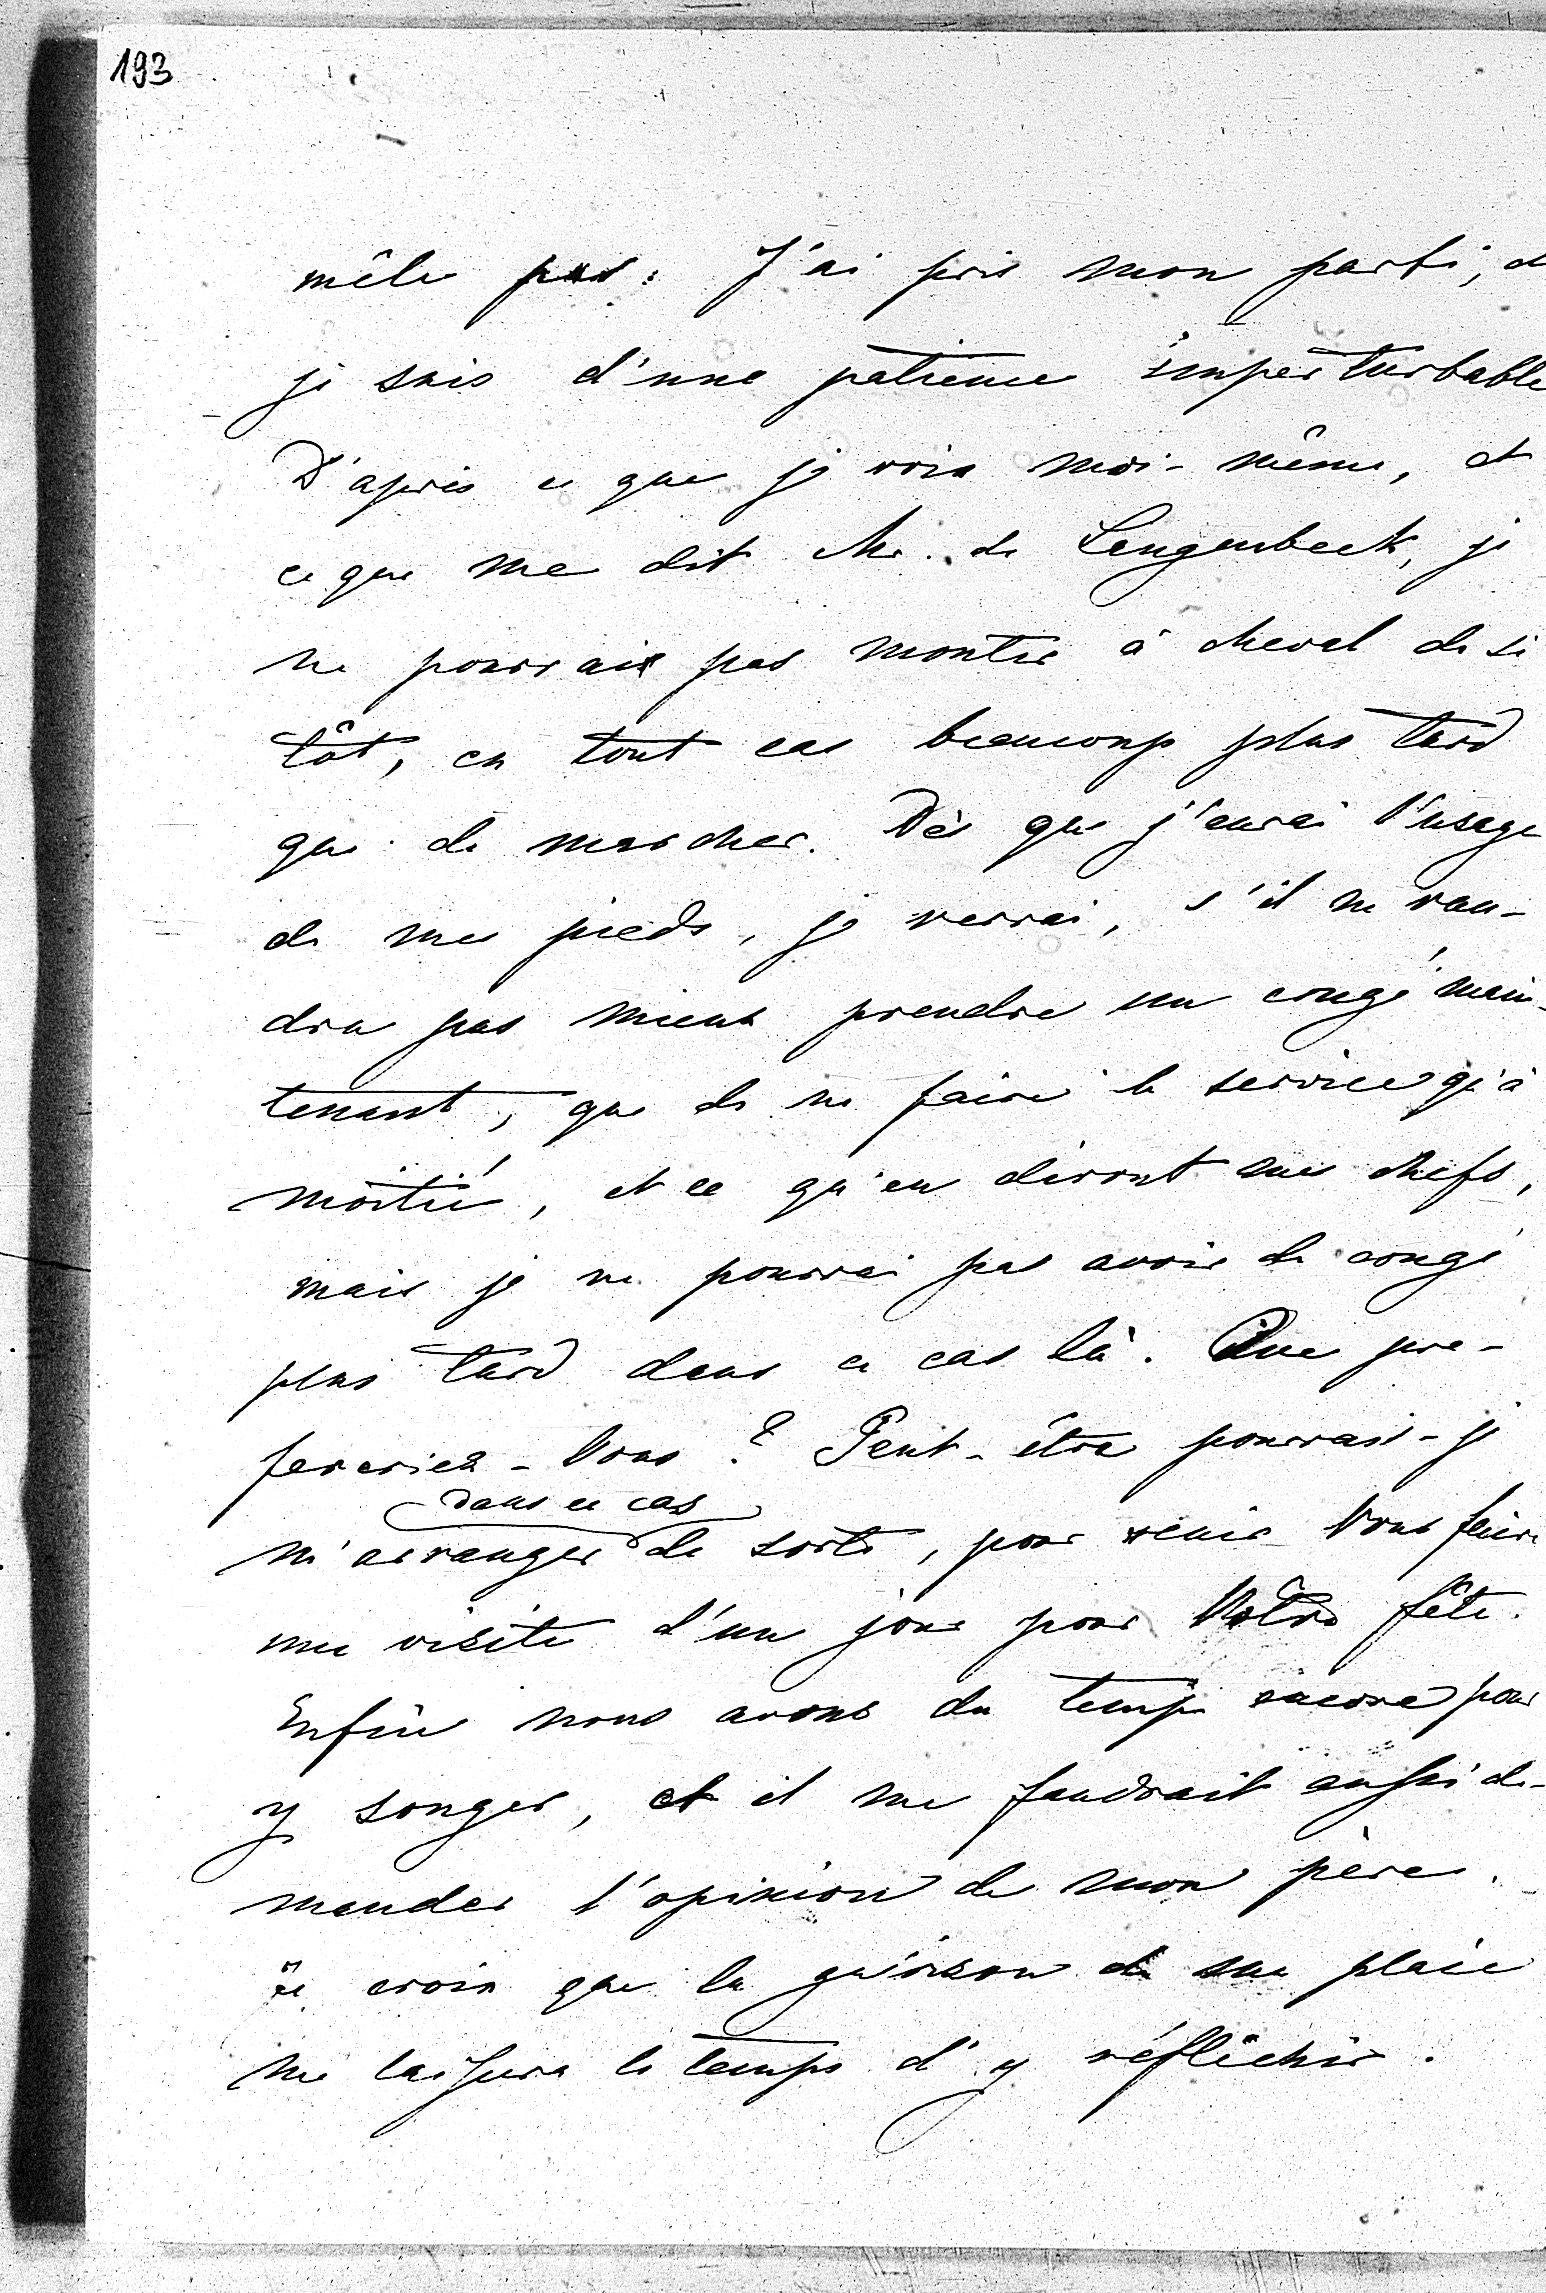 193
mêle pas. J'ai pris mon parti, et
je suis d'une patience imperturbable
D'après ce que je vois moi-même, et
ce que me dit Mr. de Langenbeck, je
ne pourrais pas monter à cheval de si
tôt, en tout cas beaucoup plus tard
que de marcher. Dès que j'aurai l'usage
de mes pieds, je verrai, s'il ne vau-
dra pas mieux prendre un congé main-
tenant, que de ne faire le service qu'à
moitié, et ce qu'en diront mes chefs,
mais je ne pourrai pas avoir de congé
plus tard dans ce cas là. Que pre-
fereriez-Vous? Peut-être pourrais-je
dans ce cas
m'arranger de sorte, pour venir Vous faire
une visite d'un jour pour Votre fête.
Enfin nous avons du temps encore pour
y songer, et il me faudrait aussi de-
mander l'opinion de mon père.
Je crois que la guérison de ma plaie
me laissera le temps d'y réfléchir.